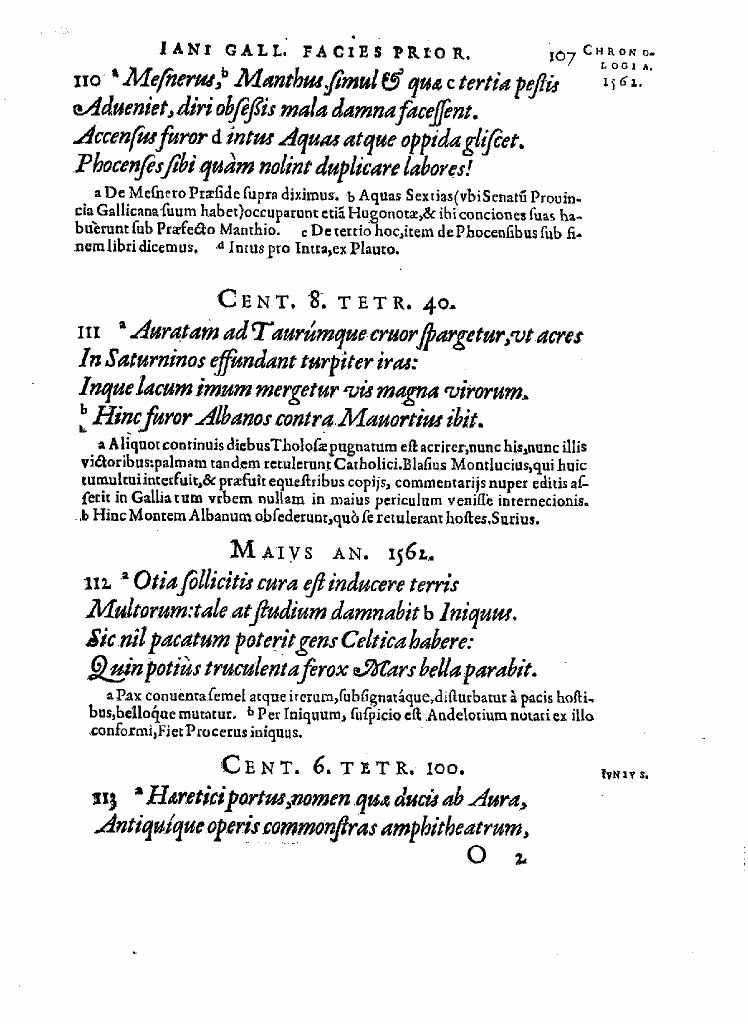 IANI GALL. FACIES PRIOR. 107 CHRONO-
LOGIA.
1562.
110 a Meſnerus, b Manthus, ſimul & quæ c tertia peſtis
Adueniet, diri obſeßis mala damna faceſſent.
Accenſus furor d intus Aquas atque oppida gliſcet.
Phocenſes ſibi quàm nolint duplicare labores!
a De Meſnero Præſide ſupra diximus. b Aquas Sextias (vbi Senatū Prouin-
cia Gallicana ſuum habet) occuparunt etiā Hugonotæ, & ibi conciones ſuas ha-
buerunt ſub Præfecto Manthio. c De tertio hoc, item de Phocenſibus ſub fi-
nem libri dicemus. d Intus pro Intra, ex Plauto.
CENT. 8. TETR. 40.
111 a Auratam ad Taurúmque cruor ſpargetur, vt acres
In Saturninos effundant turpiter iras:
Inque lacum imum mergetur vis magna virorum.
b Hinc furor Albanos contra Mauortius ibit.
a Aliquot continuis diebus Tholoſæ pugnatum eſt acrirer, nunc his, nunc illis
victoribus: palmam tandem retulerunt Catholici. Blaſius Montlucius, qui huic
tumultui interfuit, & præfuit equeſtribus copijs, commentarijs nuper editis aſ-
ſerit in Gallia tum vrbem nullam in maius periculum veniſſe internecionis.
b Hinc Montem Albanum obſederunt, quò ſe retulerant hoſtes. Surius.
MAIVS AN. 1562.
112 a Otia ſollicitis cura eſt inducere terris
Multorum: tale at ſtudium damnabit b Iniquus.
Sic nil pacatum poterit gens Celtica habere:
Quin potiùs truculenta ferox Mars bella parabit.
a Pax conuenta ſemel atque iterum, ſubſignatáque, diſturbatur à pacis hoſti-
bus, belloque mutatur. b Per Iniquum, ſuſpicio eſt Andelotium notari ex illo
conformi, Fiet Procerus iniquus.
CENT. 6. TETR. 100.
IVNIVS.
113 a Hæretici portus, nomen quæ ducis ab Aura,
Antiquíque operis commonſtras amphitheatrum,
O 2